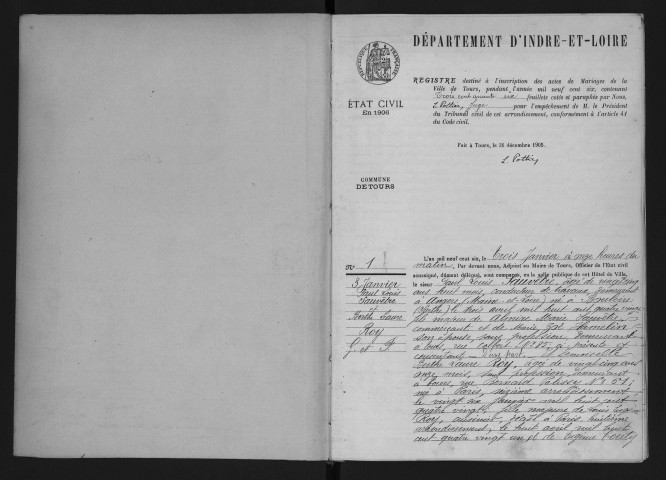 DÉPARTEMENT D'INDRE-ET-LOIRE
RÉPUBLIQUE FRANÇAISE
ÉTAT CIVIL
En 1906
COMMUNE
DE TOURS
REGISTRE destiné à l'inscription des actes de Mariages de la
Ville de Tours, pendant l'année mil neuf cent six, contenant
Trois cent six feuillets cotés et paraphés par Nous,
Juge pour l'empêchement de M. le Président
du Tribunal civil de cet arrondissement, conformément à l'article 41
du Code civil.
Fait à Tours, le 26 décembre 1905.
No 1
3 Janvier
Paul Louis
Sauvêtre
et
Berthe Laure
Roy
G et F
L'an mil neuf cent six, le trois Janvier à onze heures du
matin, Par devant nous, Adjoint au Maire de Tours, Officier de l'Etat civil
soussigné, dûment délégué, sont comparus, en la salle publique de cet Hôtel de Ville,
le sieur Paul Louis Sauvêtre, âgé de vingt cinq
ans huit mois, conducteur de travaux, domicilié
à Angers (Maine et Loire) né à
le trois avril mil huit cent quatre vingt
fils majeur de Marie Sauvêtre
commerçant et de Marie
son épouse, sans profession, demeurant
à Tours, rue Colbert présents et
consentant D'une part. Et demoiselle
Berthe Laure Roy, âgée de vingt cinq ans
onze mois, sans profession, demeurant
à Tours, rue Bernard Palissy No 51,
née à Paris, arrondissement
le vingt six Janvier mil huit cent
quatre vingt, fille majeure de Louis
Roy, cuisinier, décédé à Paris, huitième
arrondissement, le huit avril mil huit
cent quatre vingt un et de Eugénie